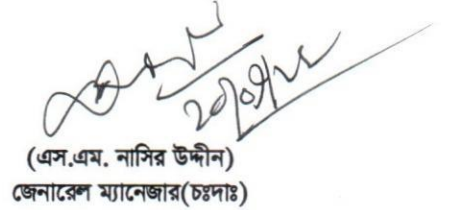 (এস.এম. নাসির উদ্দীন)
জেনারেল ম্যানেজার(চঃদাঃ)